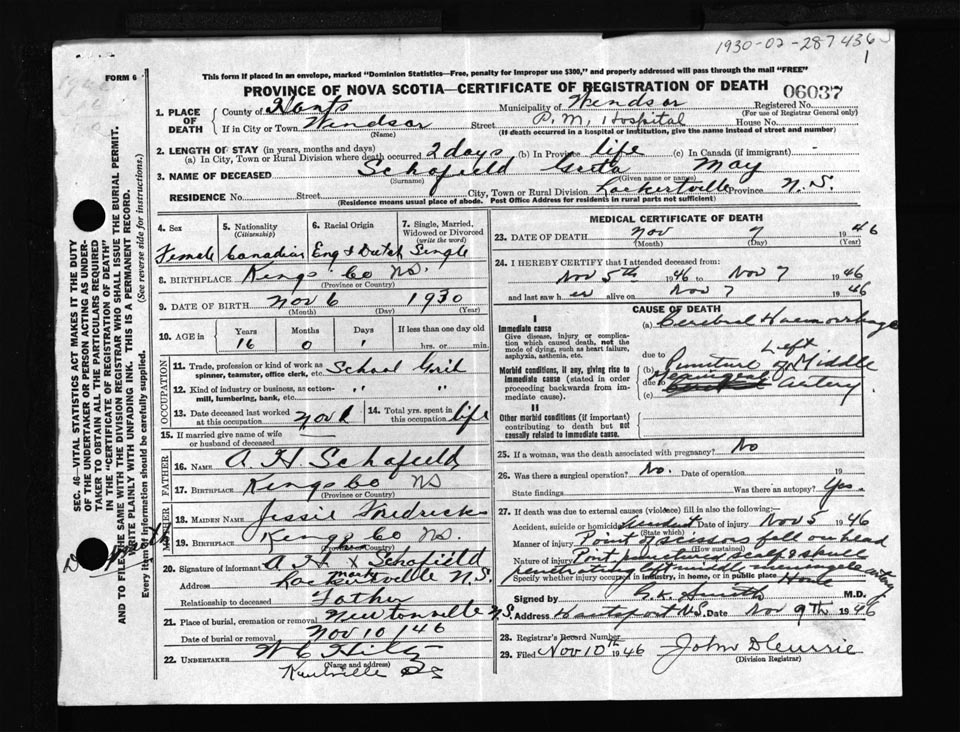 1930-02-287436
1
FORM 6
This form if placed in an envelope, marked "Dominion Statistics—Free, penalty for improper use $300," and properly addressed will pass through the mail "FREE"
PROVINCE OF NOVA SCOTIA—CERTIFICATE OF REGISTRATION OF DEATH 06037
1. PLACE OF DEATH County of Hants Municipality of Windsor Registered No.
(For use of Registrar General only)
If in City or Town Windsor Street P.M. Hospital House No.
(Name) (If death occurred in a hospital or institution, give the name instead of street and number)
2. LENGTH OF STAY (in years, months and days)
(a) In City, Town or Rural Division where death occurred 2 days (b) In Province life (c) In Canada (if immigrant)
3. NAME OF DECEASED Schofield Greta May
(Surname) (Given name or names)
RESIDENCE No. Street City, Town or Rural Division Lockertville Province N.S.
(Residence means usual place of abode. Post Office Address for residents in rural parts not sufficient)
4. Sex 5. Nationality (Citizenship) 6. Racial Origin 7. Single, Married, Widowed or Divorced (write the word)
Female Canadian Eng & Dutch Single
8. BIRTHPLACE Kings Co NS.
(Province or Country)
9. DATE OF BIRTH Nov 6 1930
(Month) (Day) (Year)
10. AGE in Years Months Days If less than one day old
16 0 1 hrs. or min.
OCCUPATION
11. Trade, profession or kind of work as spinner, teamster, office clerk, etc. School Girl
12. Kind of industry or business, as cotton-mill, lumbering, bank, etc. " "
13. Date deceased last worked at this occupation Nov 1 14. Total yrs. spent in this occupation life
15. If married give name of wife or husband of deceased
FATHER
16. NAME A. H. Schofield
17. BIRTHPLACE Kings Co NS
(Province or Country)
MOTHER
18. MAIDEN NAME Jessie Fredricks
19. BIRTHPLACE Kings Co NS.
(Province or Country)
20. Signature of informant A H X Schofield
Address Lockertville N.S.
Relationship to deceased Father
21. Place of burial, cremation or removal Newtonville N.S.
Date of burial or removal Nov 10 / 46
22. UNDERTAKER W C Hiltz
(Name and address)
Kentville
MEDICAL CERTIFICATE OF DEATH
23. DATE OF DEATH Nov 7 1946
(Month) (Day) (Year)
24. I HEREBY CERTIFY that I attended deceased from:
Nov 5th 1946 to Nov 7 1946
and last saw h er alive on Nov 7 1946
CAUSE OF DEATH
I
Immediate cause (a) Cerebral Haemorrhage
Give disease, injury or complication which caused death, not the mode of dying, such as heart failure, asphyxia, asthenia, etc.
due to Left
Morbid conditions, if any, giving rise to immediate cause (stated in order proceeding backwards from immediate cause).
(b) Puncture of Middle
due to artery
(c)
II
Other morbid conditions (if important) contributing to death but not causally related to immediate cause.
25. If a woman, was the death associated with pregnancy? No
26. Was there a surgical operation? No. Date of operation 19
State findings Was there an autopsy? Yes.
27. If death was due to external causes (violence) fill in also the following:—
Accident, suicide or homicide? Accident Date of injury Nov 5 1946
(State which)
Manner of injury Point of scissors fell on head
(How sustained)
Nature of injury Point punctured scalp & skull
penetrating left middle meningeal artery
Specify whether injury occurred in industry, in home, or in public place Home
Signed by G.K. Smith M.D.
Address Hantsport N.S. Date Nov 9th 1946
28. Registrar's Record Number
29. Filed Nov 10th 1946 John D Currie
(Division Registrar)
SEC. 46—VITAL STATISTICS ACT MAKES IT THE DUTY
OF THE UNDERTAKER OR PERSON ACTING AS UNDER-
TAKER TO OBTAIN ALL THE PARTICULARS REQUIRED
IN THE "CERTIFICATE OF REGISTRATION OF DEATH"
AND TO FILE THE SAME WITH THE DIVISION REGISTRAR WHO SHALL ISSUE THE BURIAL PERMIT.
WRITE PLAINLY WITH UNFADING INK. THIS IS A PERMANENT RECORD.
Every item of Information should be carefully supplied. (See reverse side for instructions.)